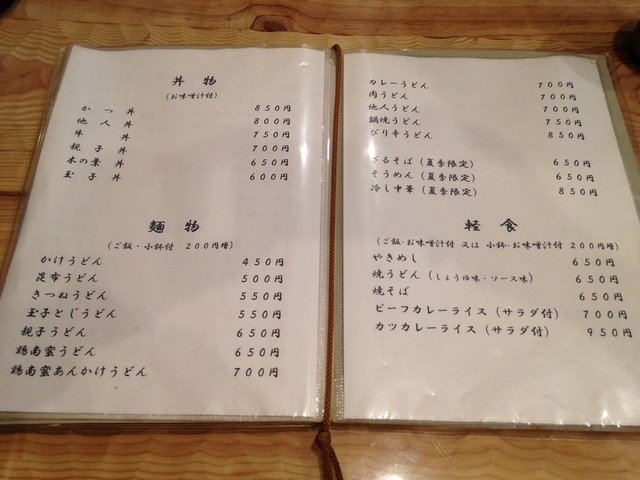 丼 物
(お味噌汁付)
かつ丼 850円
他人丼 800円
牛丼 750円
親子丼 700円
木の葉丼 650円
玉子丼 600円
麺 物
(ご飯・小鉢付 200円増)
かけうどん 450円
昆布うどん 500円
きつねうどん 550円
玉子とじうどん 550円
親子うどん 650円
鶏南蛮うどん 650円
鶏南蛮あんかけうどん 700円
カレーうどん 700円
肉うどん 700円
他人うどん 700円
鍋焼うどん 750円
ぴり辛うどん 850円
ざるそば (夏季限定) 650円
そうめん (夏季限定) 650円
冷し中華 (夏季限定) 850円
軽 食
(ご飯・お味噌汁付 又は 小鉢・お味噌汁付 200円増)
やきめし 650円
焼うどん (しょうゆ味・ソース味) 650円
焼そば 650円
ビーフカレーライス (サラダ付) 700円
カツカレーライス (サラダ付) 950円